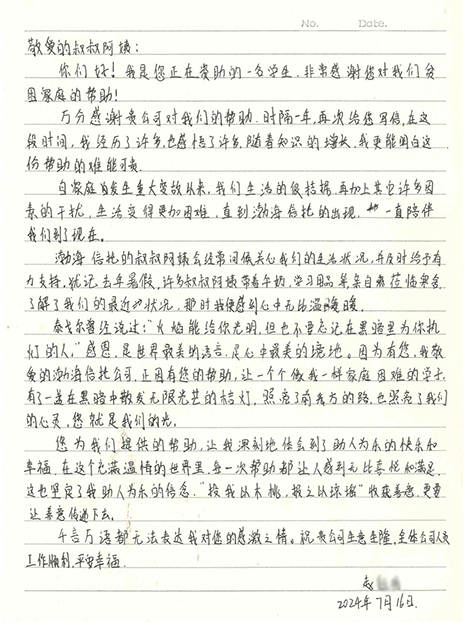 No. Date.
敬爱的叔叔阿姨：
你们好！我是您正在资助的一名学生，非常感谢您对我们贫
困家庭的帮助！
万分感谢贵公司对我们的帮助．时隔一年，再次给您写信，在这
段时间，我经历了许多，也感悟了许多，随着知识的增长，我更能明白这
份帮助的难能可贵．
自家庭发生重大变故以来，我们生活的很拮据，再加上其它许多因
素的干扰，生活变得更加困难，直到渤海信托的出现，一直陪伴
我们到了现在．
渤海信托的叔叔阿姨会经常问候关心我们的生活状况，并及时给予有
力支持，犹记去年暑假，许多叔叔阿姨带着牛奶，学习用品等亲自莅临寒舍
了解了我们的最近状况，那时我便感到心中无比温暖．
泰戈尔曾经说过：“火焰能给你光明，但也不要忘记在黑暗里为你执
灯的人．”感恩，是世界最美的语言，是心中最美的境地。因为有您，我敬
爱的渤海信托公司，正因有您的帮助，让一个个像我一样家庭困难的学生，
有了一盏在黑暗中散发无限光芒的桔灯，照亮了前方的路，也照亮了我们
的心灵，您就是我们的光．
您为我们提供的帮助，让我深刻地体会到了助人为乐的快乐和
幸福，在这个充满温情的世界里，每一次帮助都让人感到无比喜悦和满足，
这也坚定了我助人为乐的信念．“投我以木桃，报之以琼瑶”收获善意，更要
让善意传递下去．
千言万语都无法表达我对您的感激之情．祝贵公司生意兴隆，全体公司人员
工作顺利，平安幸福．
赵
2024年7月16日．